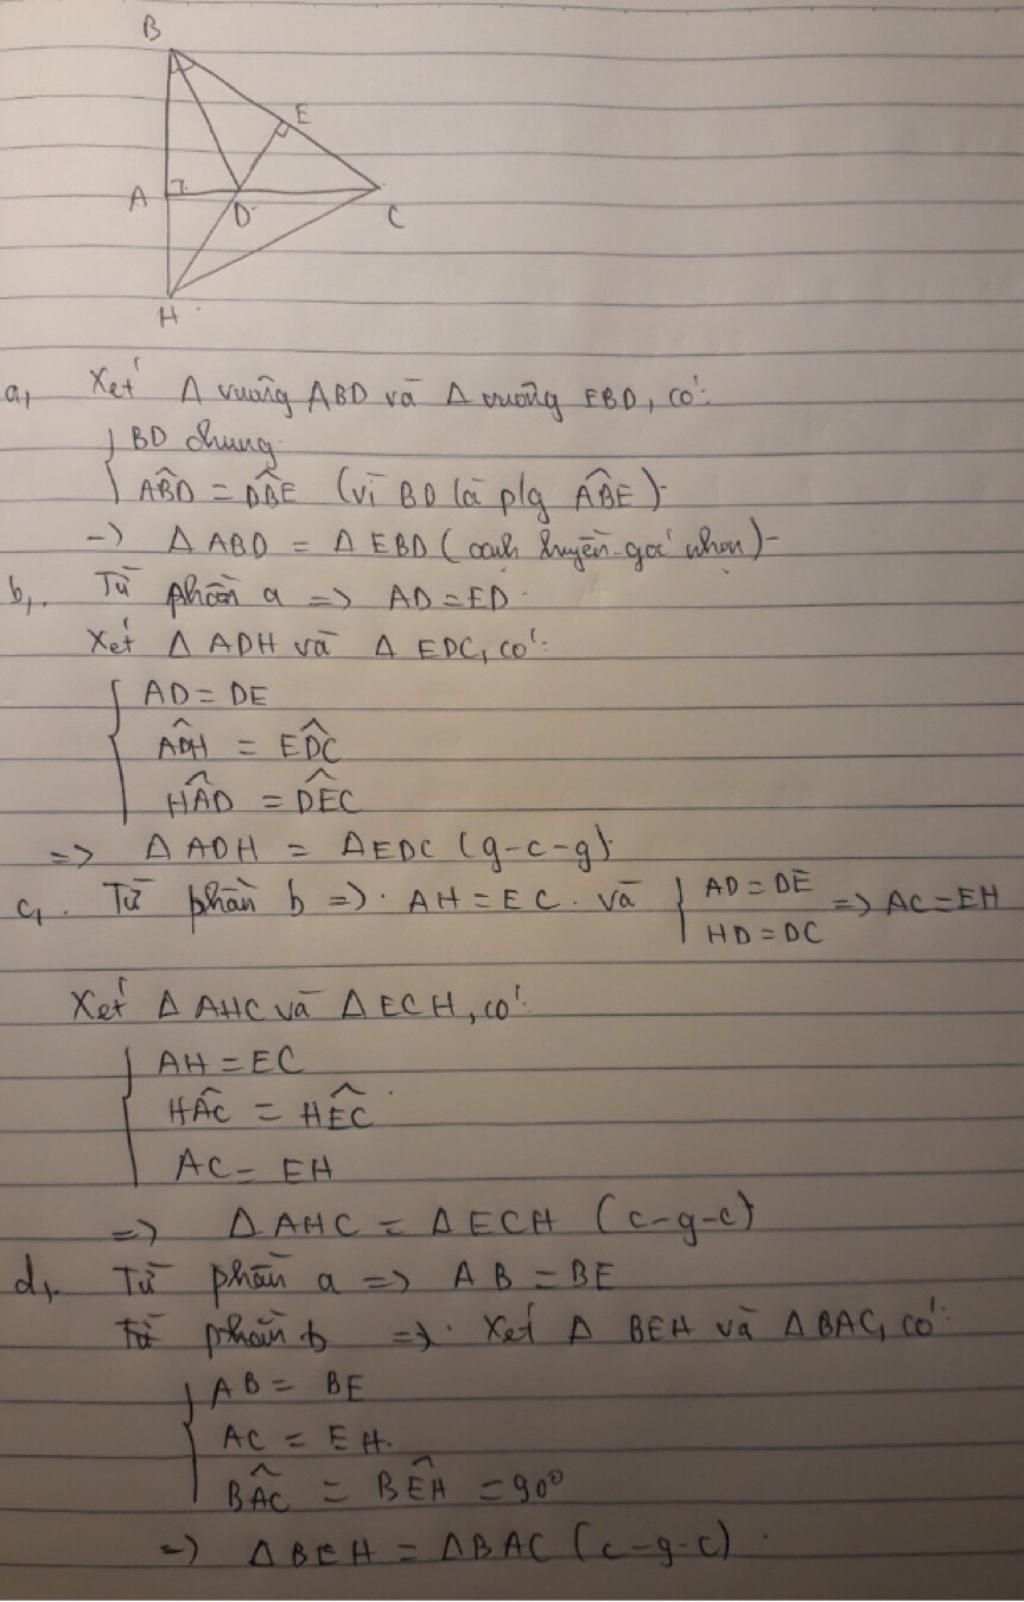 B
E
A
D
C
H
a, Xét Δ vuông ABD và Δ vuông EBD, có:
BD chung
ABD̂ = DB̂E (vì BD là p/g AB̂E)
-> Δ ABD = Δ EBD (cạnh huyền-góc nhọn)
b, Từ phần a => AD = ED
Xét Δ ADH và Δ EDC, có:
AD = DE
AD̂H = ED̂C
HÂD = DÊC
=> Δ ADH = Δ EDC (g-c-g)
c, Từ phần b => AH = EC và { AD = DE => AC = EH
HD = DC
Xét Δ AHC và Δ ECH, có:
AH = EC
HÂC = HÊC
AC = EH
=> Δ AHC = Δ ECH (c-g-c)
d, Từ phần a => AB = BE
Từ phần b => Xét Δ BEH và Δ BAC, có:
AB = BE
AC = EH
BÂC = BÊH = 90°
=> Δ BEH = Δ BAC (c-g-c)